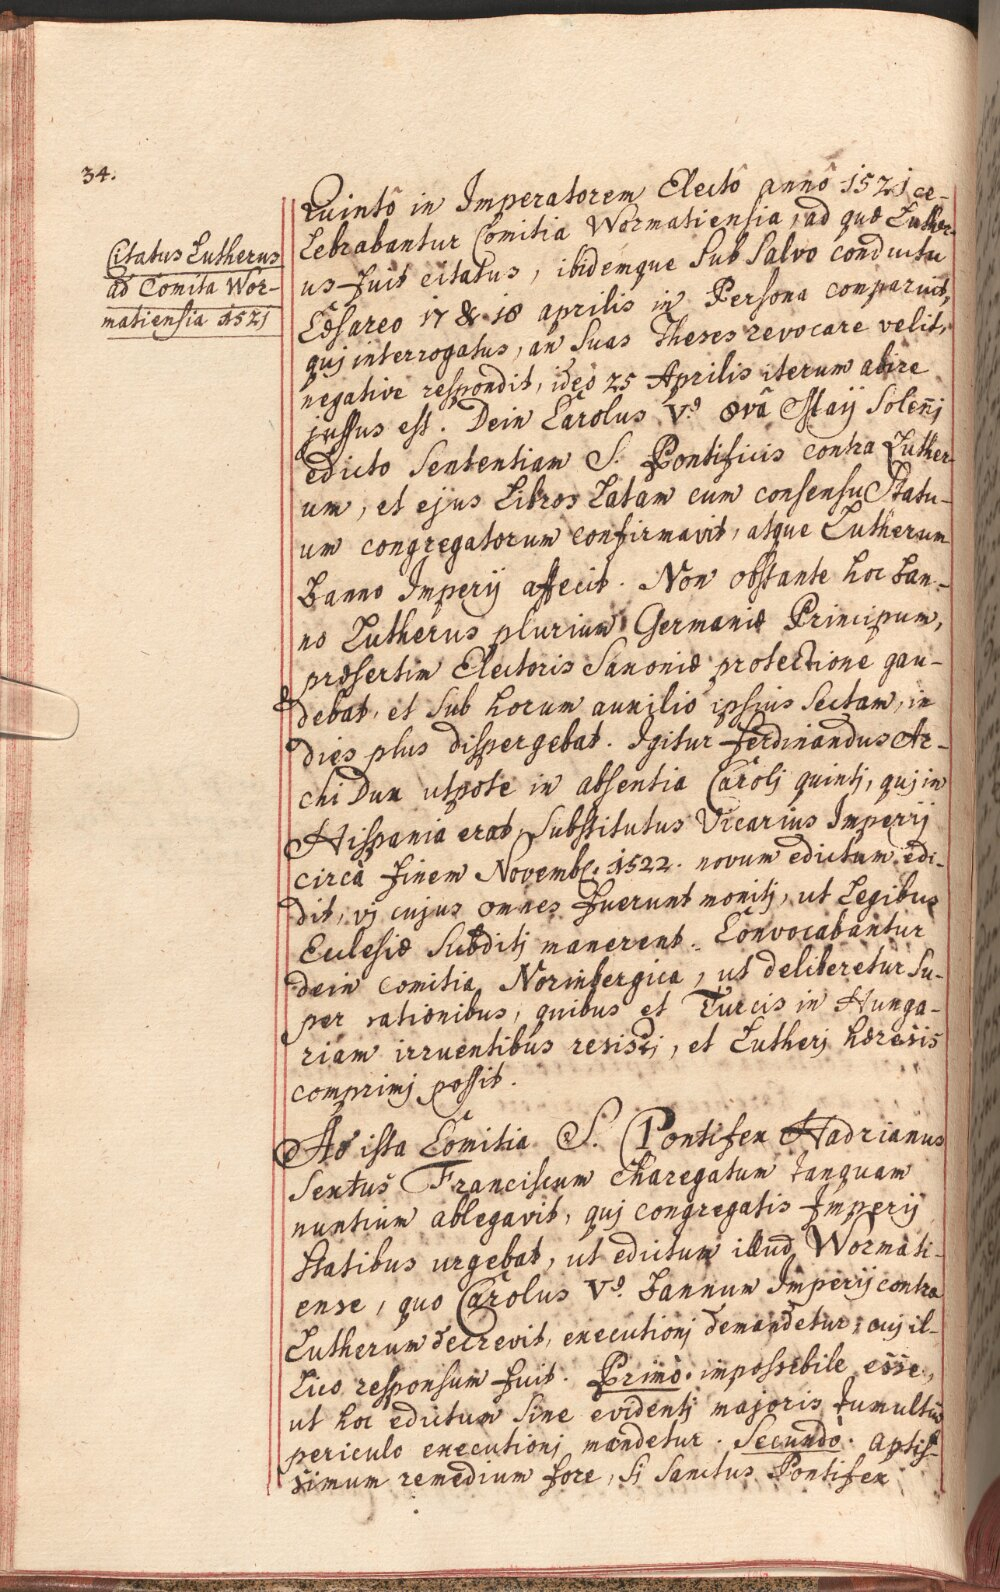 34.
Citatus Lutherus
ad Comita Wor-
matiensia 1521
Quintô in Imperatorem Electô annô 1521 ce-
lebrabantur Comitia Wormatiensia, ad quæ Luther-
us fuit citatus, ibidemque sub salvo conductu
Cæsareo 17 & 18 aprilis in Persona comparuit,
quj interrogatus, an suas theses revocare velit,
negative respondit, ideo 25 Aprilis iterum abire
jussus est. Dein Carolus V.s 8vâ Maij solenj
edicto sententiam S. Pontificis contra Luther-
um, et ejus Libros Latam cum consensu Statu-
um congregatorum confirmavit, atque Lutherum
banno Imperij affecit. Non obstante hoc ban-
no Lutherus plurium Germaniæ Principum,
præsertim Electoris Saxoniæ protectione gau-
debat, et sub horum auxilio ipsius sectam, in
dies plus dispergebat. Igitur Ferdinandus Ar-
chi Dux utpote in absentia Carolj quintj, quj in
Hispania erat, substitutus Vicarius Imperij
circa finem Novemb. 1522. novum edictum edi-
dit, vj cujus omnes fuerunt monitj, ut Legibus
Ecclesiæ subditj manerent. Convocabantur
dein comitia Norinbergica, ut deliberetur su-
per rationibus, quibus et Turcis in Hunga-
riam irruentibus resistj, et Lutherj hæresis
comprimj possit.
Ad ista Comitia S. Pontifex Hadrianus
sextus Franciscum Charegatum tanquam
nuntium ablegavit, quj congregatis Imperij
statibus urgebat, ut edictum illud Wormati-
ense, quo Carolus V.s bannum Imperij contra
Lutherum decrevit, executionj demandetur; cuj il-
lico responsum fuit. Primò. impossibile esse,
ut hoc edictum sine evidentj majoris tumultûs
periculo executionj mandetur. Secundò. aptis-
simum remedium fore, si Sanctus Pontifex